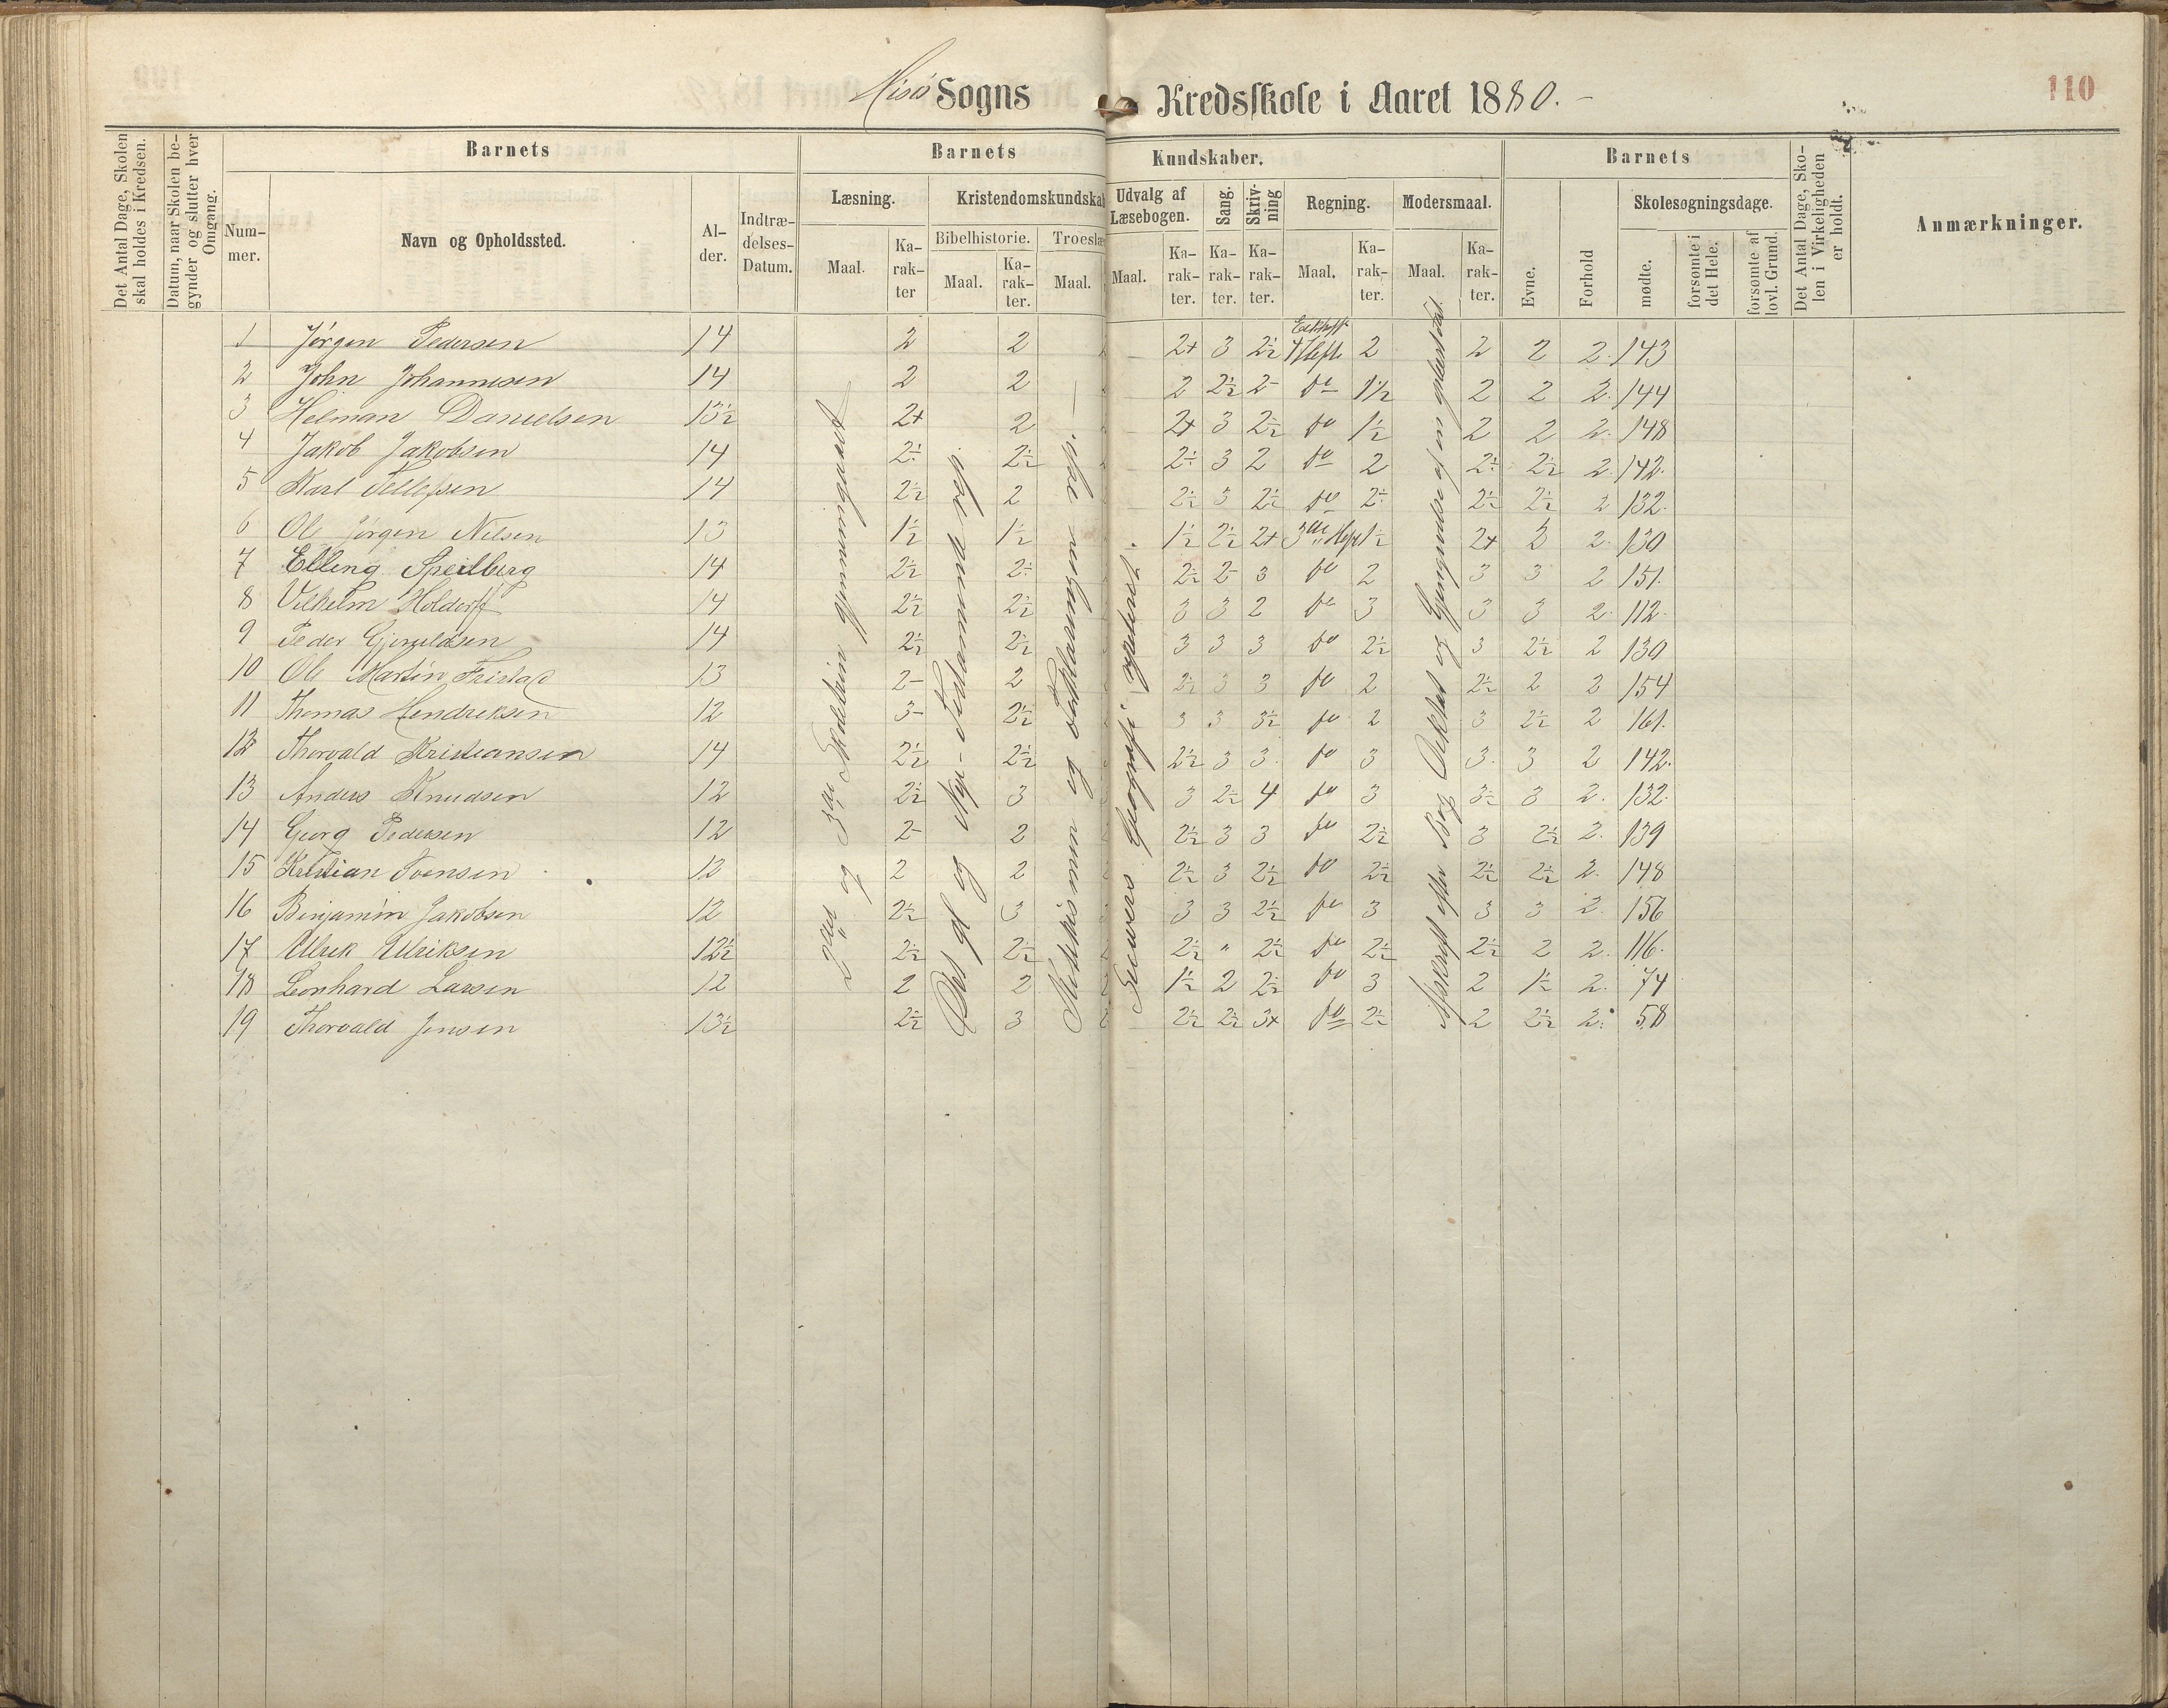 Hisö Sogns Kredsskole i Aaret 1880.-
110
Det Antal Dage, Skolen skal holdes i Kredsen.
Datum, naar Skolen begynder og slutter hver Omgang.
Barnets
Nummer.
Navn og Opholdssted.
Alder.
Indtrædelses-Datum.
Barnets Kundskaber.
Læsning.
Maal.
Karakter
Kristendomskundskab
Bibelhistorie.
Maal.
Karakter.
Troeslær
Maal.
Udvalg af Læsebogen.
Maal.
Karakter.
Sang.
Karakter.
Skrivning
Karakter.
Regning.
Maal.
Karakter.
Modersmaal.
Maal.
Karakter.
Barnets
Evne.
Forhold
Skolesøgningsdage.
mødte.
forsømte i det Hele.
forsømte af lovl. Grund.
Det Antal Dage, Skolen i Virkeligheden er holdt.
Anmærkninger.
1 Jørgen Pedersen 14 2 2 2+ 3 2½ 4 Hefte 2 2 2 2. 143
2 John Johannesen 14 2 2 2 2½ 2- do 1½ 2 2 2. 144
3 Helman Danielsen 13½ 2+ 2 2+ 3 2½ do 1½ 2 2 2. 148
4 Jakob Jakobsen 14 2½ 2½ 2½ 3 2 do 2 2½ 2½ 2. 142.
5 Karl Tellefsen 14 2½ 2 2½ 3 2½ do 2½ 2½ 2½ 2 132.
6 Ole Jørgen Nilsen 13 1½ 1½ 1½ 2½ 2+ 3die Hefte 1½ 2+ 2 2. 130
7 Elling Speilberg 14 2½ 2½ 2½ 2- 3 do 2 3 3 2 151.
8 Vilhelm Holdorff 14 2½ 2½ 3 3 2 do 3 3 3 2. 112.
9 Peder Gjeruldsen 14 2½ 2½ 3 3 3 do 2½ 3 2½ 2 130
10 Ole Martin Fristad 13 2- 2 2½ 3 3 do 2 2½ 2 2 154
11 Thomas Hendriksen 12 3- 2½ 3 3 3½ do 2 3 2½ 2 161.
12 Thorvald Kristiansen 14 2½ 2½ 2½ 3 3. do 3 3. 3 2 142.
13 Anders Knudsen 12 2½ 3 3 2½ 4 do 3 3½ 3 2. 132.
14 Georg Pedersen 12 2- 2 2½ 3 3 do 2½ 3 2½ 2. 139
15 Kristian Svensen 12 2 2 2½ 3 2½ do 2½ 2½ 2½ 2. 148
16 Benjamin Jakobsen 12 2½ 3 3 3 2½ do 3 3 3 2. 156
17 Ulrik Ulriksen 12½ 2½ 2½ 2½ " 2½ do 2½ 2½ 2 2. 116.
18 Leonhard Larsen 12 2 2 1½ 2 2½ do 3 2 1½ 2. 74
19 Thorvald Jensen 13½ 2½ 3 2½ 2½ 3+ do 2½ 2 2½ 2. 58
2det og 3die Skoletrin gjennemgaaet
Det gl og Nye-Testamente rep.
Katekismen og Forklaringen rep. -
Geografi repeteret.
Afskrift efter Bog Diktat og Gjengivelse af en